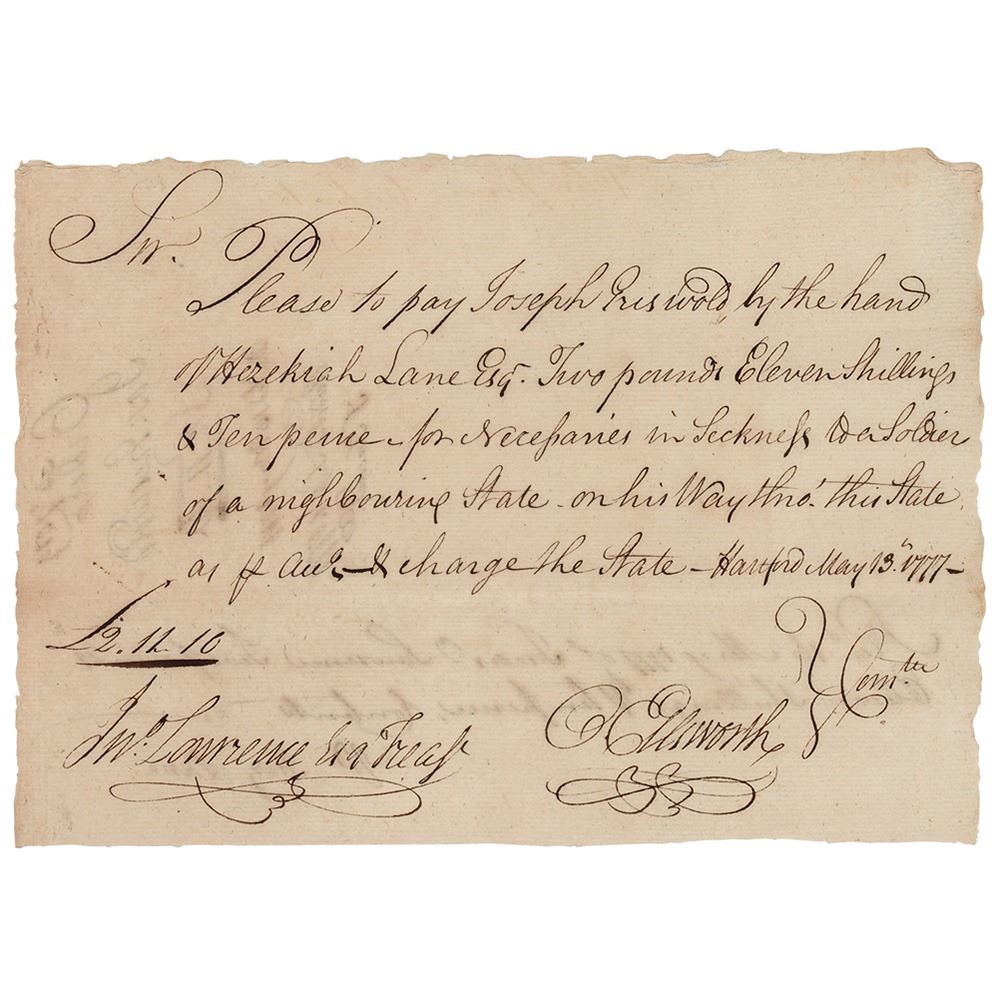 Sir.
Please to pay Joseph Griswold, by the hand
of Hezekiah Lane Esqr. Two pounds Eleven Shillings
& Ten pence - for Necessaries in Sickness to a Soldier
of a nighbouring State - on his Way thro' this State
as pr Acct. - & charge the State - Hartford May 13th 1777 -
£2.11.10
Jno. Lawrence Esq Treasr
O Ellsworth } Comtee